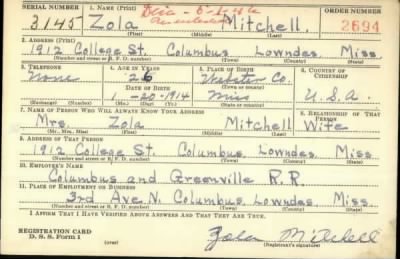 SERIAL NUMBER 1. NAME (Print) ORDER NUMBER
3145 Zola Mitchell. 2694
(First) (Middle) (Last)
2. ADDRESS (Print)
1912 College St. Columbus Lowndes, Miss.
(Number and street or R. F. D. number) (Town) (County) (State)
3. TELEPHONE 4. AGE IN YEARS 5. PLACE OF BIRTH 6. COUNTRY OF CITIZENSHIP
None 26 Webster Co.
DATE OF BIRTH (Town or county)
1-20-1914 Miss U.S.A.
(Exchange) (Number) (Mo.) (Day) (Yr.) (State or country)
7. NAME OF PERSON WHO WILL ALWAYS KNOW YOUR ADDRESS 8. RELATIONSHIP OF THAT PERSON
Mrs. Zola Mitchell Wife
(Mr., Mrs., Miss) (First) (Middle) (Last)
9. ADDRESS OF THAT PERSON
1912 College St. Columbus, Lowndes, Miss.
(Number and street or R. F. D. number) (Town) (County) (State)
10. EMPLOYER'S NAME
Columbus and Greenville R.R.
11. PLACE OF EMPLOYMENT OR BUSINESS
3rd Ave N. Columbus Lowndes, Miss.
(Number and street or R. F. D. number) (Town) (County) (State)
I AFFIRM THAT I HAVE VERIFIED ABOVE ANSWERS AND THAT THEY ARE TRUE.
REGISTRATION CARD
D. S. S. Form 1 (over) Zola Mitchell
(Registrant's signature)